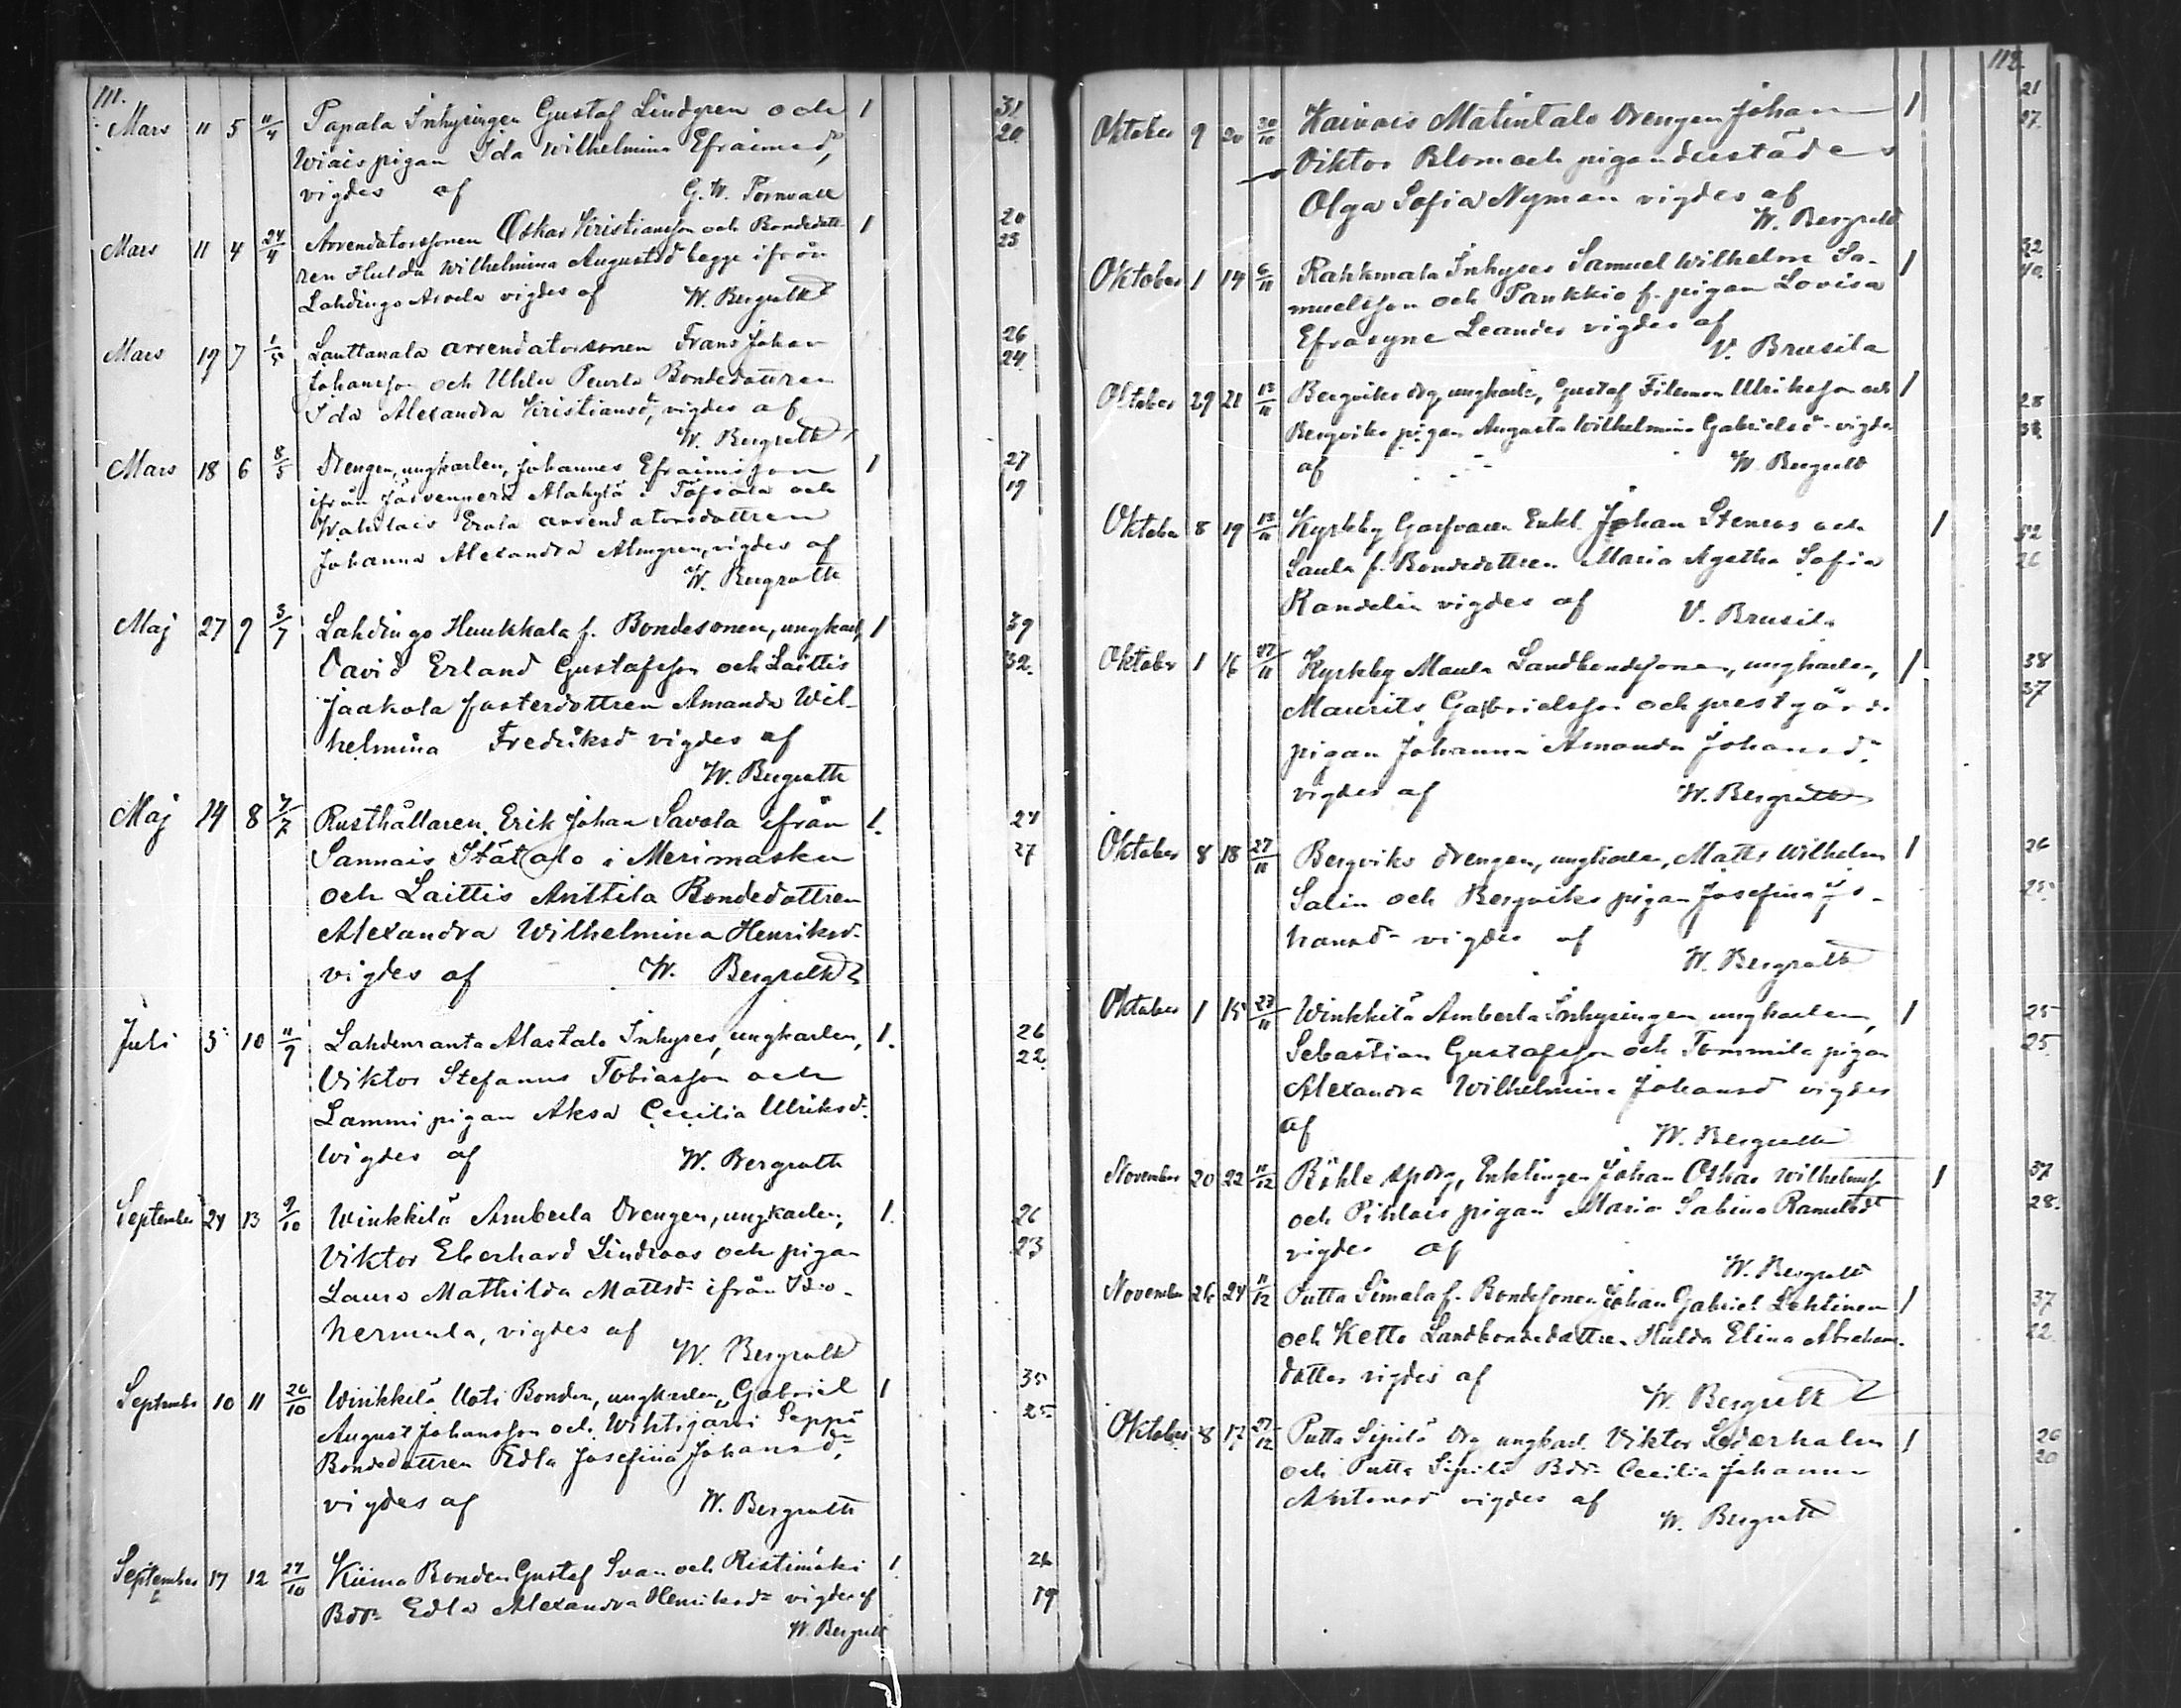 111.
Mars 11 5 11/4 Papala Inhysingen Gustaf Lindgren och 1 31
Wiais pigan Ida Wilhelmina Efraimsd, 20
vigdes af G. W. Tornvall
Mars 11 4 24/4 Arrendatorssonen Oskar Kristiansson och Bondedott- 1 20
ren Hulda Wilhelmina Augustsd begge ifrån 23
Lahdingo Assela vigdes af W. Bergroth
Mars 19 7 1/5 Lauttanala arrendatorsonen Frans Johan 26
Johansson och Uhlu Peurla Bondedottren 24
Ida Alexandra Kristiansd, vigdes af
W. Bergroth
Mars 18 6 8/5 Drengen, ungkarlen, Johannes Efraimsson 1 27
ifrån Järvenperä Alakylä i Töfsala och 19
Wahdais Erola arrendatorsdottren
Johanna Alexandra Almgren, vigdes af
W. Bergroth
Maj 27 9 3/7 Lahdingo Huukkala f. Bondesonen, ungkarl, 1 39
David Erland Gustafsson och Laittis 32.
Jaakola fosterdottren Amanda Wil-
helmina Fredriksd vigdes af
W. Bergroth
Maj 14 8 7/7 Rusthållaren Erik Johan Savola ifrån 1. 24
Sannais Ståtalo i Merimasku 27
och Laittis Anttila Bondedottren
Alexandra Wilhelmina Henriksd.
vigdes af W. Bergroth
Juli 3 10 11/9 Lahdenranta Alastalo Inhyses, ungkarlen, 1. 26
Viktor Stefanus Tobiasson och 22
Lammi pigan Aksa Cecilia Ulriksd.
vigdes af W. Bergroth
September 24 13 9/10 Winkkilä Amberla Drengen, ungkarlen, 1. 26
Viktor Eberhard Lindroos och pigan 23
Laura Mathilda Mattsd ifrån
hermula, vigdes af
W. Bergroth
September 10 11 26/10 Winkkilä Uoti Bonden, ungkarlen, Gabriel 1 35
August Johansson och Wihtijärvi Seppä 25
Bondedottren Edla Josefina Johansd,
vigdes af W. Bergroth
September 17 12 27/10 Kiima Bonden Gustaf Svan och Ristimäki 1. 26
Bdr Edla Alexandra Henriksd vigdes af 19
W. Bergroth
112.
Oktober 9 20 30/10 Kaivois Matintalo Drengen Johan 1 21
Viktor Blom och pigan derstädes 27.
Olga Sofia Nyman vigdes af
W. Bergroth
Oktober 1 14 6/11 Rahkmala Inhyses Samuel Wilhelm Sa- 1 32
muelsson och Pankkio f. pigan Lovisa 40.
Efrosyne Leander vigdes af
V. Brusila
Oktober 29 21 13/11 Bergviks drg, ungkarlen, Gustaf Filemon Ulriksson och 1 28
Bergviks pigan Augusta Wilhelmina Gabrielsd vigdes
af W. Bergroth
Oktober 8 19 13/11 Kyrkby Garfvaren Enkl. Johan Stenros och 1 52
Saula f. Bondedottren Maria Agatha Sofia 26
Randelin vigdes af V. Brusila
Oktober 1 16 27/11 Kyrkby Maula Landbondesonen, ungkarlen, 1 38
Maurits Gabrielsson och prestgårds 37
pigan Johanna Amanda Johansd
vigdes af W. Bergroth
Oktober 8 18 27/11 Bergviks drengen, ungkarlen, Matts Wilhelm 1 26
Salin och Bergviks pigan Josefina Jo- 25
hansd vigdes af
W. Bergroth
Oktober 1 15 27/11 Winkkilä Amberla Inhysingen ungkarlen, 1 25
Sebastian Gustafsson och Tommila pigan 25
Alexandra Wilhelmina Johansd vigdes
af W. Bergroth
November 20 22 11/12 Böhle Enklingen Johan Oskar Wilhelmss 1 37
och Pihlais pigan Maria Sabina 28.
vigdes af
W. Bergroth
November 26 24 11/12 Putta Simala f. Bondesonen Johan Gabriel Lehtinen 1 37
och Ketto Landbondedottren Hulda Elina Abrahams- 22
dotter vigdes af
W. Bergroth
Oktober 8 17 27/12 Putta Sipilä Drg ungkarl. Viktor Söderholm 1 26
och Putta Sipilä Bdr Cecilia Johanna 20
Antonsd vigdes af
W. Bergroth